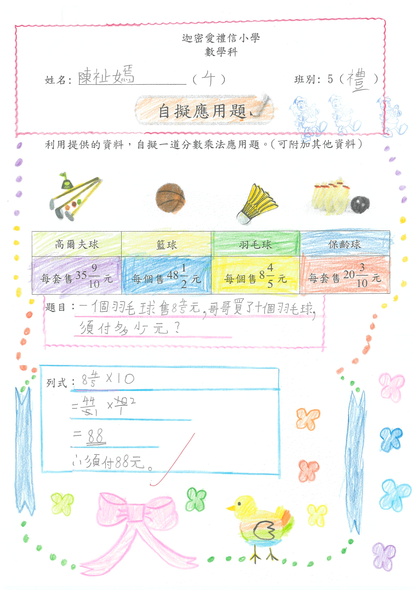 迦密愛禮信小學
數學科
姓名: 陳祉嫣 (4) 班別: 5 (禮)
自擬應用題
利用提供的資料,自擬一道分數乘法應用題。(可附加其他資料)
高爾夫球 籃球 羽毛球 保齡球
每套售35 9/10元 每個售48 1/2元 每個售8 4/5元 每套售20 3/10元
題目: 一個羽毛球售8 4/5元,哥哥買了十個羽毛球,
須付多少元?
列式: 8 4/5 × 10
= 44/5 1 × 10 2/1
= 88
∴須付88元。